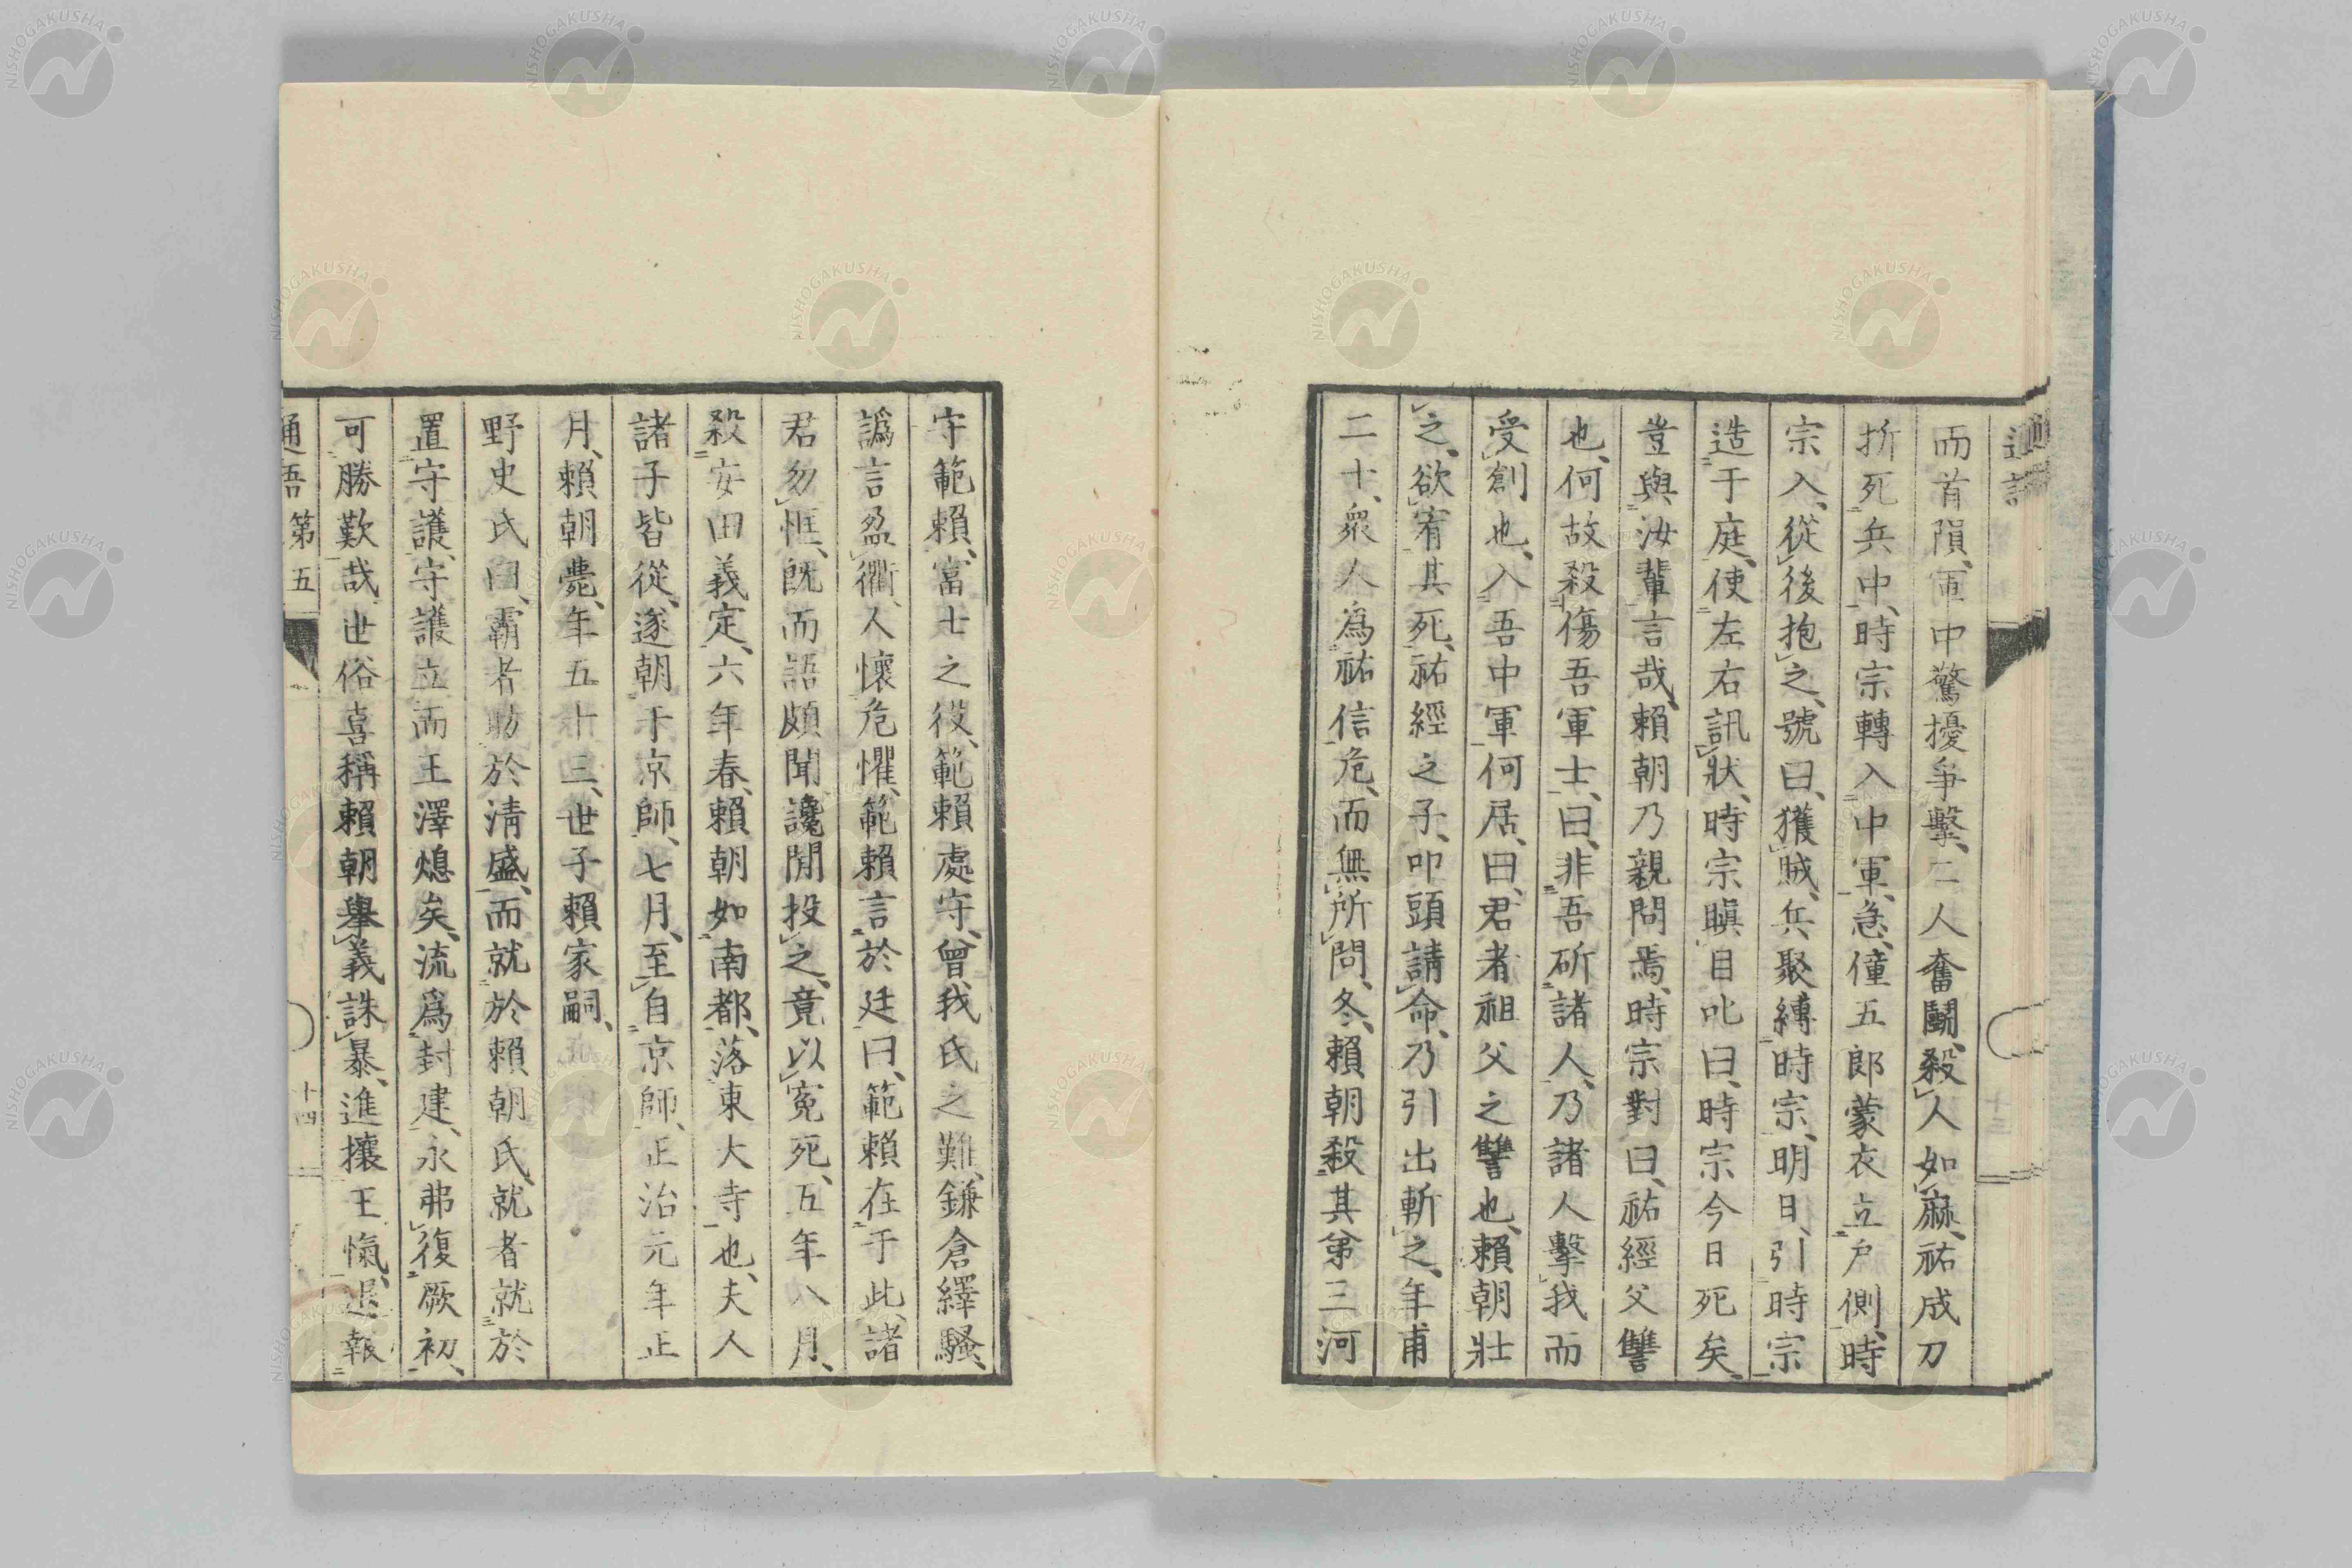 而首隕、軍中驚擾爭擊、二人奮鬭、殺人如麻、祐成刀
折死兵中、時宗轉入中軍、急、僮五郎蒙衣立戶側、時
宗入、從後抱之、號曰、獲賊、兵聚縛時宗、明日、引時宗
造于庭、使左右訊狀、時宗瞋目叱曰、時宗今日死矣、
豈與汝輩言哉、賴朝乃親問焉、時宗對曰、祐經父讐
也、何故殺傷吾軍士、曰、非吾斫諸人、乃諸人擊我而
受創也、入吾中軍何居、曰、君者祖父之讐也、賴朝壯
之、欲宥其死、祐經之子、叩頭請命、乃引出斬之、年甫
二十、衆人爲祐信危、而無所問、冬、賴朝殺其弟三河
守範賴、富士之役、範賴處守、曾我氏之難、鎌倉繹騷、
譌言盈衢、人懷危懼、範賴言於廷曰、範賴在于此、諸
君勿恇、既而語頗聞、讒閒投之、竟以冤死、五年八月、
殺安田義定、六年春、賴朝如南都、落東大寺也、夫人
諸子皆從、遂朝于京師、七月、至自京師、正治元年正
月、賴朝薨、年五十三、世子賴家嗣、
野史氏曰、霸者昉於淸盛、而就於賴朝氏、就者就於
置守護、守護立而王澤熄矣、流爲封建、永弗復厥初、
可勝歎哉、世俗喜稱賴朝擧義誅暴、進攘王愾、退報
通語 第五
十四
NISHOGAKUSHA